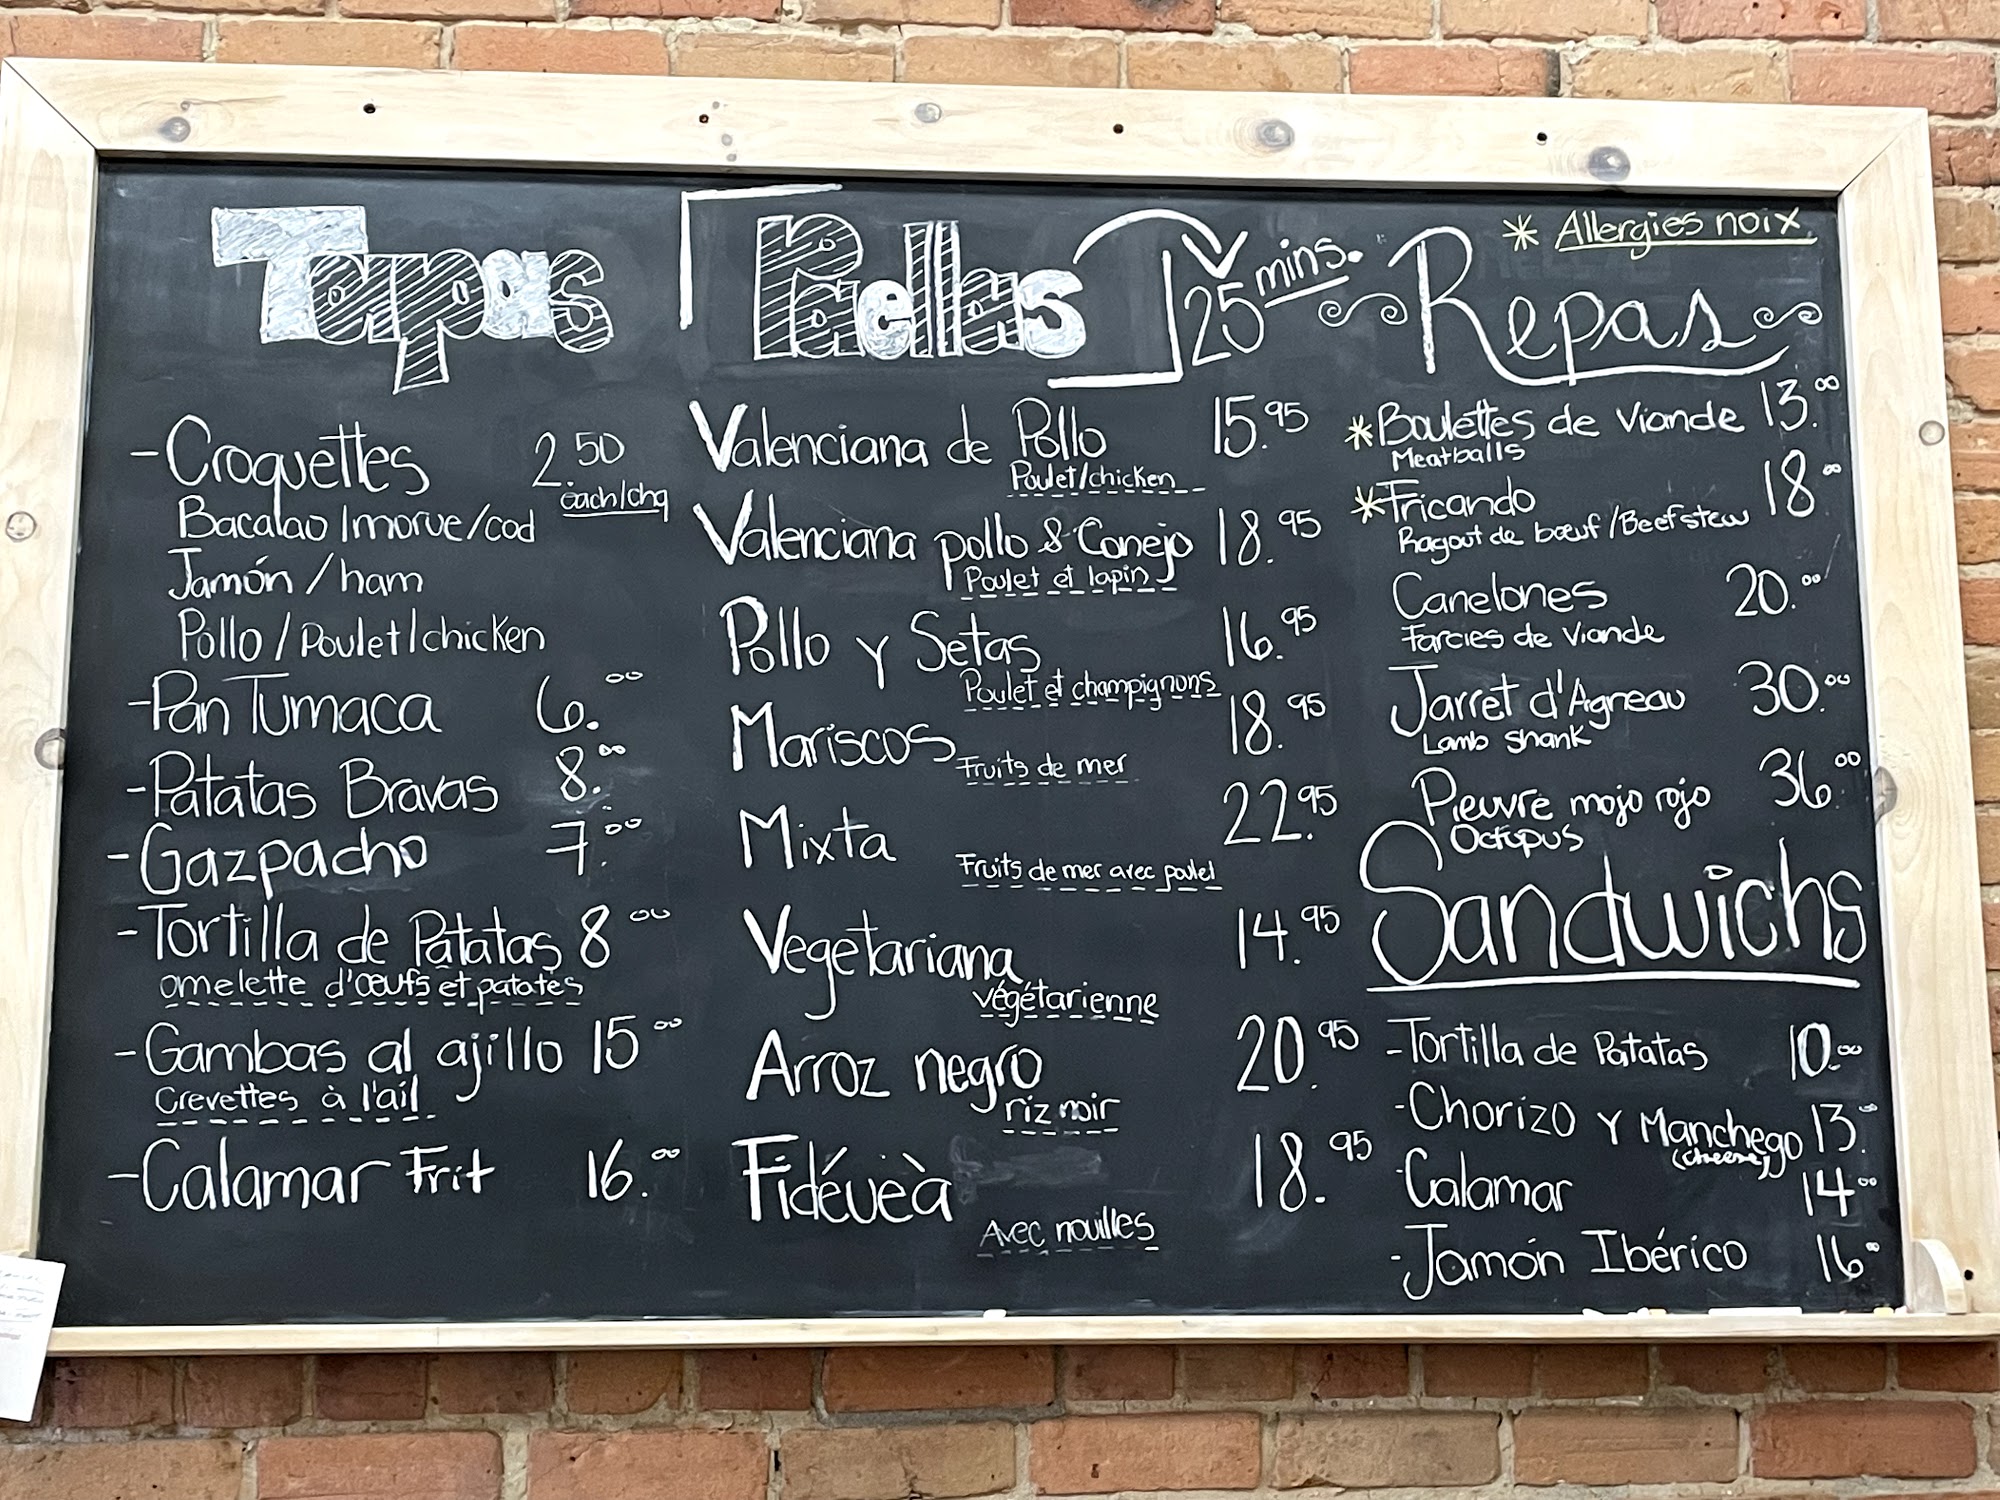 Tapas
- Croquettes 2.50
each/chq
Bacalao/morue/cod
Jamón/ham
Pollo/Poulet/chicken
- Pan Tumaca 6.00
- Patatas Bravas 8.00
- Gazpacho 7.00
- Tortilla de Patatas 8 00
omelette d'œufs et patates
- Gambas al ajillo 15 00
Crevettes à l'ail
- Calamar Frit 16.00
Paellas 25 mins.
Valenciana de Pollo 15.95
Poulet/chicken
Valenciana pollo & Conejo 18.95
Poulet et lapin
Pollo y Setas 16.95
Poulet et champignons
Mariscos 18.95
Fruits de mer
Mixta 22.95
Fruits de mer avec poulet
Vegetariana 14.95
végétarienne
Arroz negro 20.95
riz noir
Fidéueà 18.95
Avec nouilles
* Allergies noix
Repas
*Boulettes de Viande 13.00
Meatballs
*Fricando 18.00
Ragout de bœuf/Beef stew
Canelones 20.00
Farcies de Viande
Jarret d'Agneau 30.00
Lamb Shank
Pieuvre mojo rojo 36.00
Octopus
Sandwichs
- Tortilla de Patatas 10.00
- Chorizo y Manchego 13.00
(cheese)
- Calamar 14.00
- Jamón Ibérico 16.00